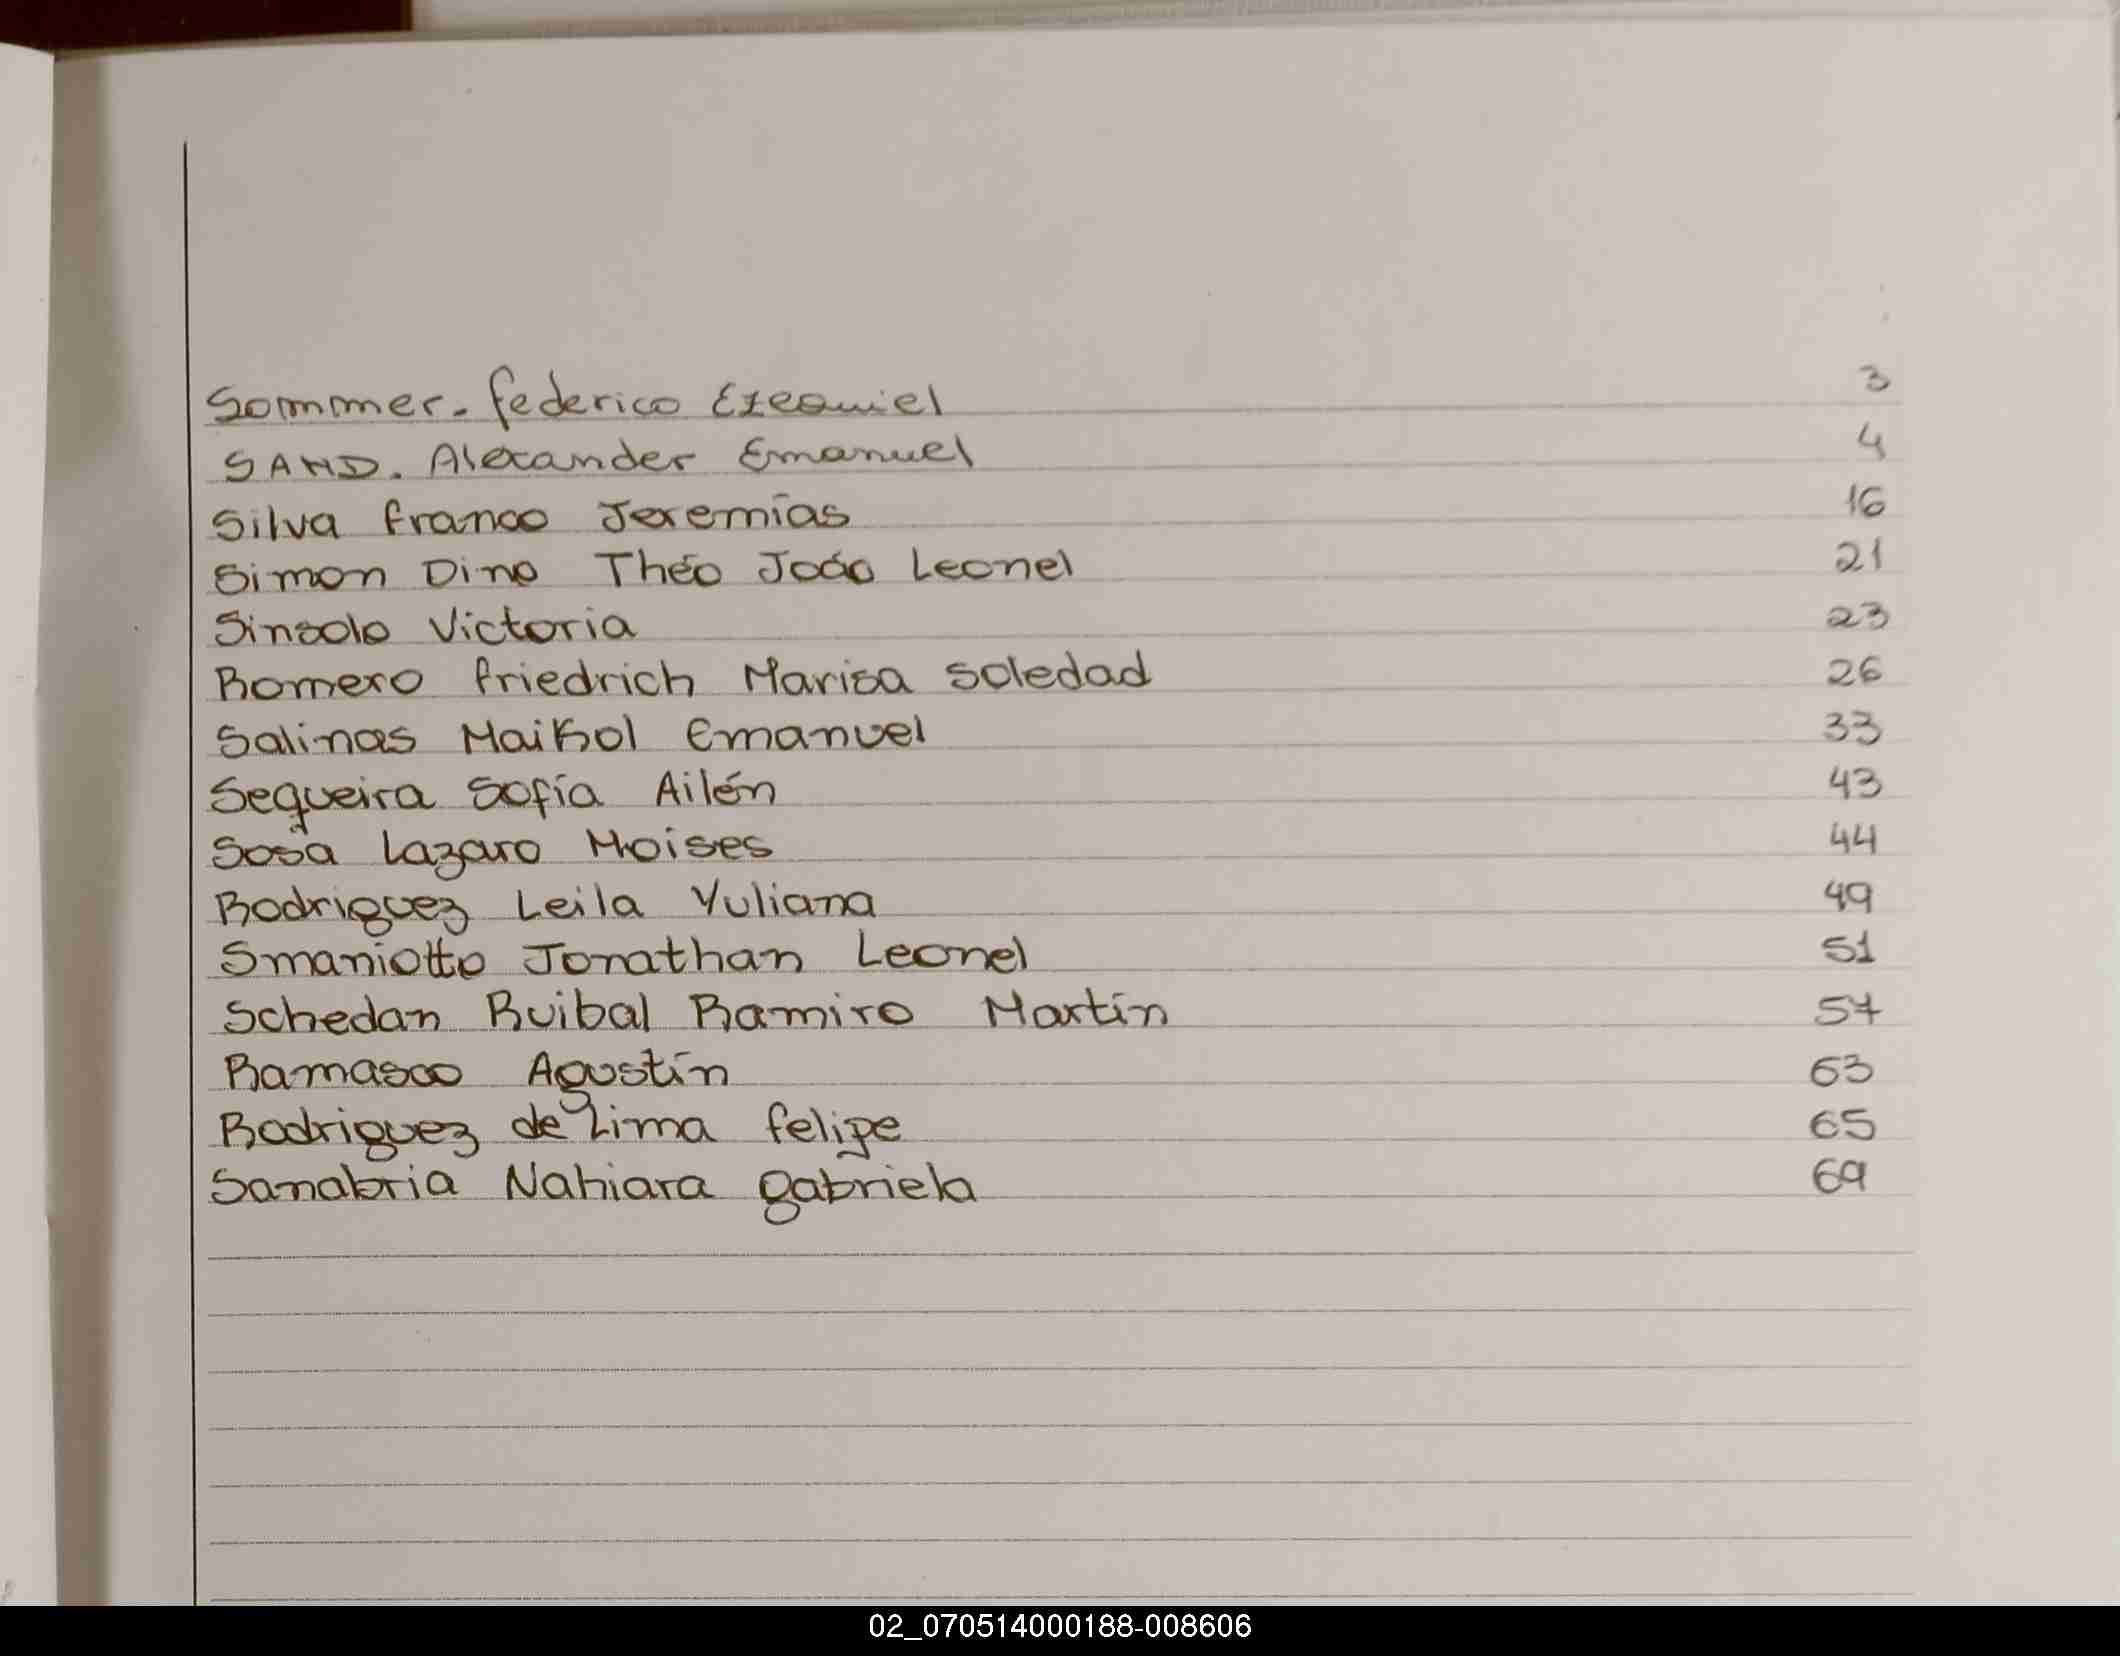 Sommer. Federico Ezequiel 3
SAND. Alexander Emanuel 4
Silva Franco Jeremías 16
Simon Dino Théo João Leonel 21
Sinsolo Victoria 23
Romero Friedrich Marisa Soledad 26
Salinas Maikol Emanuel 33
Sequeira Sofía Ailén 43
Sosa Lazaro Moises 44
Rodriguez Leila Yuliana 49
Smaniotto Jonathan Leonel 51
Schedan Ruibal Ramiro Martín 57
Ramasco Agustín 63
Rodriguez de Lima Felipe 65
Sanabria Nahiara Gabriela 69
02_070514000188-008606